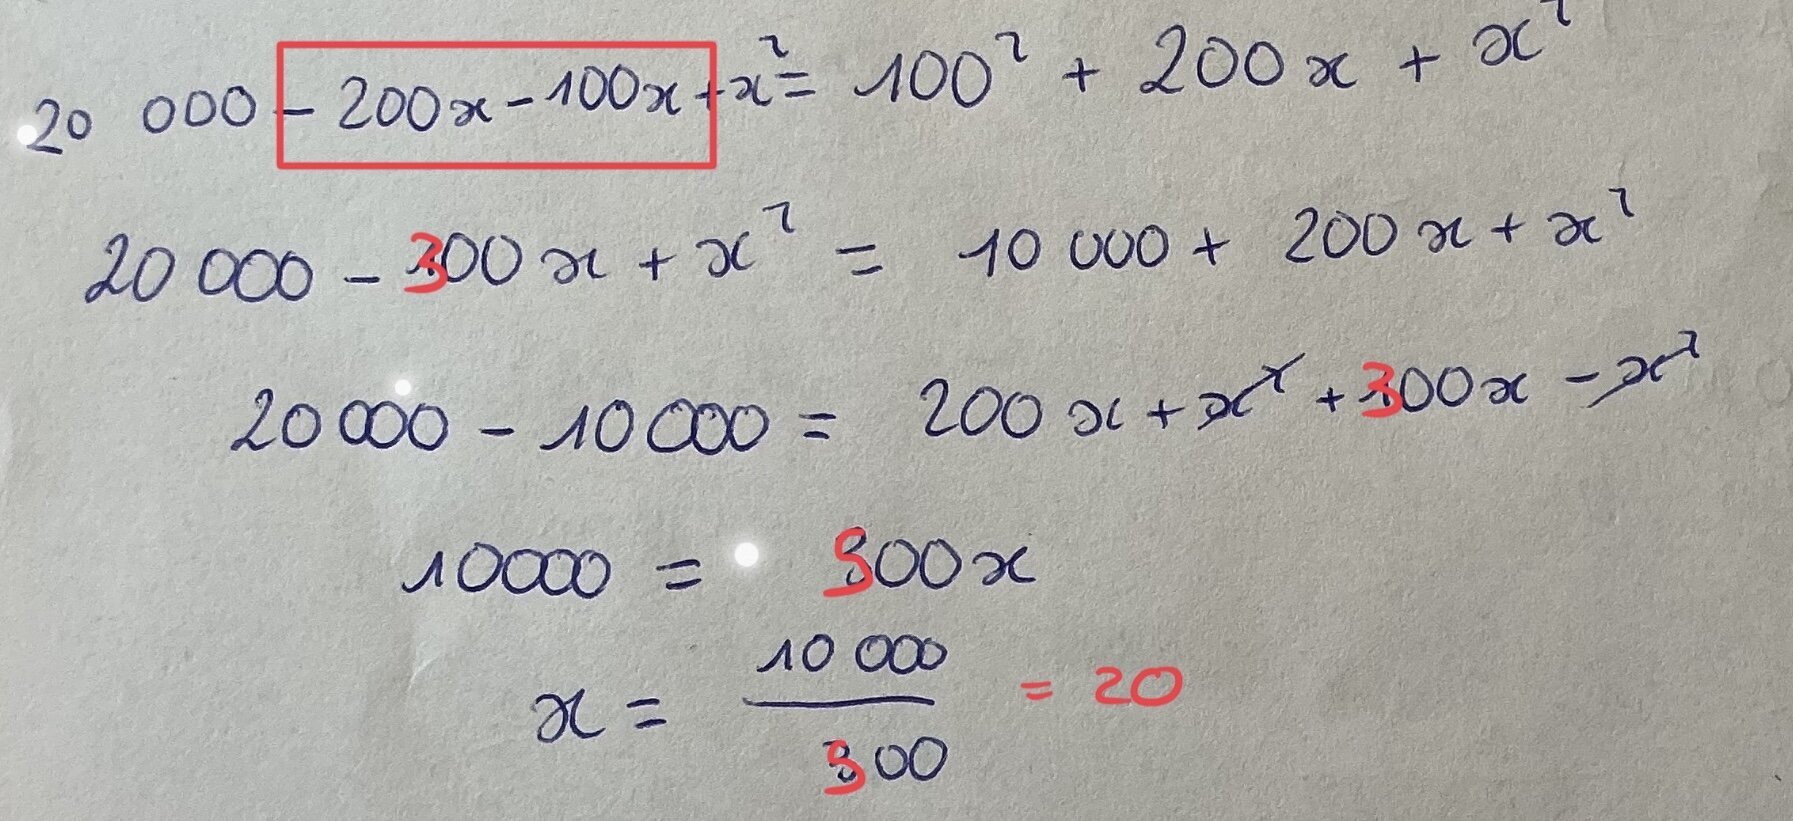 20 000 - 200x - 100x + x² = 100² + 200x + x²
20 000 - 300x + x² = 10 000 + 200x + x²
20 000 - 10 000 = 200x + x² + 300x - x²
10000 = 500x
x = 10 000 / 500 = 20